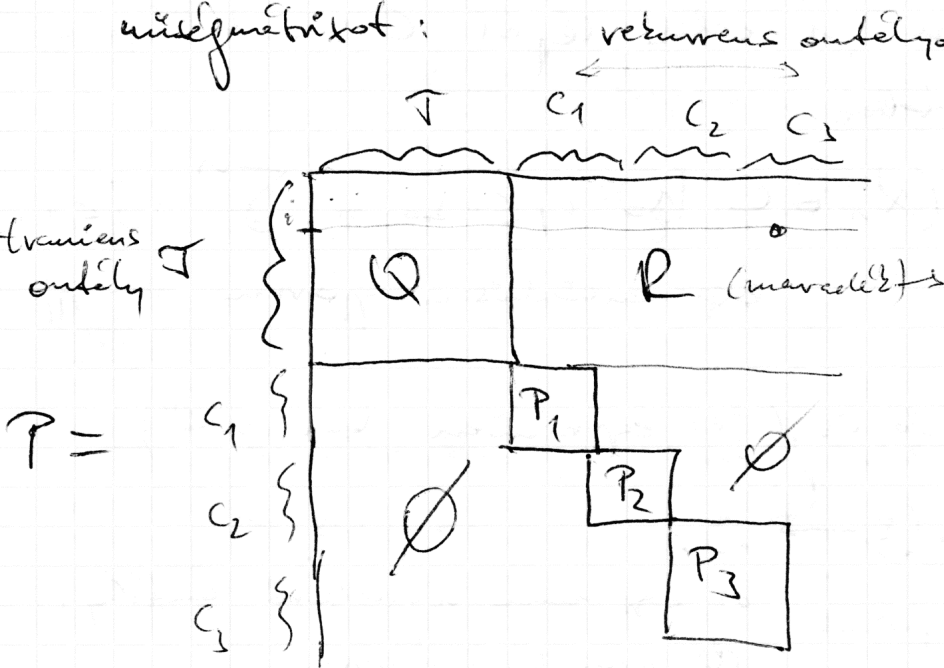 nűségmátrixot : rekurrens osztályo
T C1 C2 C3
i
tranziens T
osztály Q R (maradék)
P1
P = C1
P2 ∅
C2 ∅
P3
C3